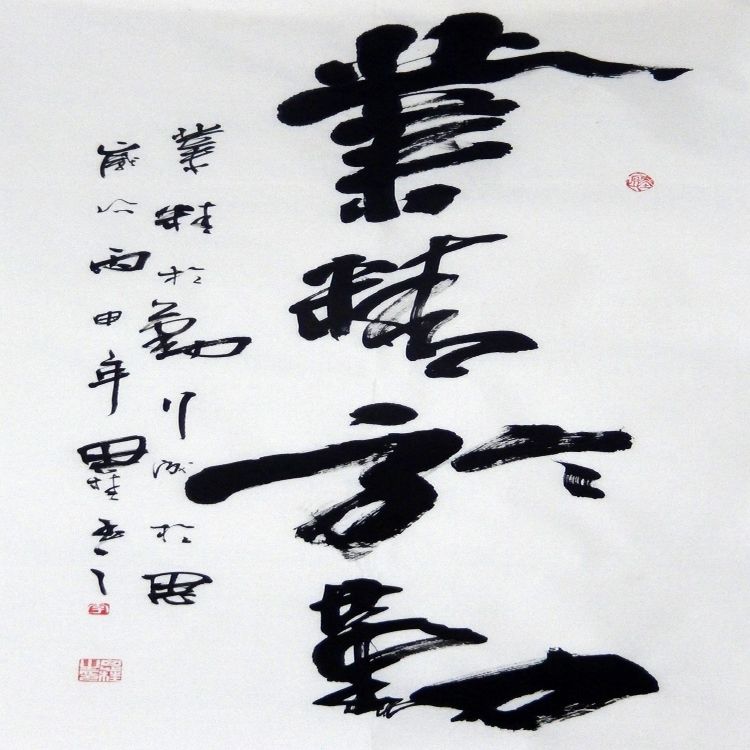 業精於勤
業精於勤行成於思
歲次丙申年